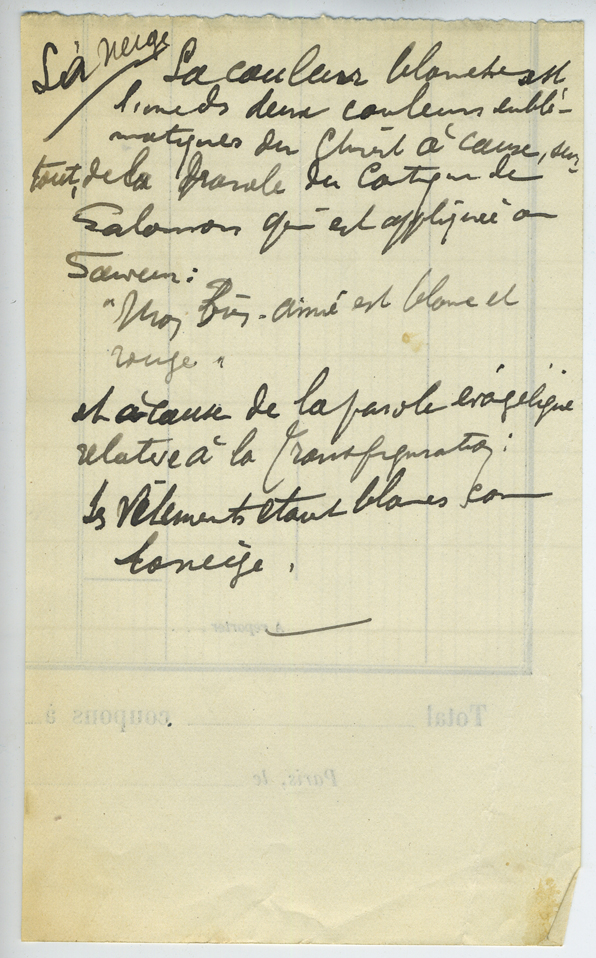 La neige
La couleur blanche est
l'une ds deux couleurs emblé-
matiques du Christ à cause, sur-
tout, de la parole du Cantique de
Salomon qui est appliquée au
Sauveur :
"Mon Bien-aimé est blanc et
rouge"
et à cause de la parole évangélique
relative à la Transfiguration :
Ses Vêtements étaient blancs com
la neige.
A reporter
Total coupons à
Paris, le